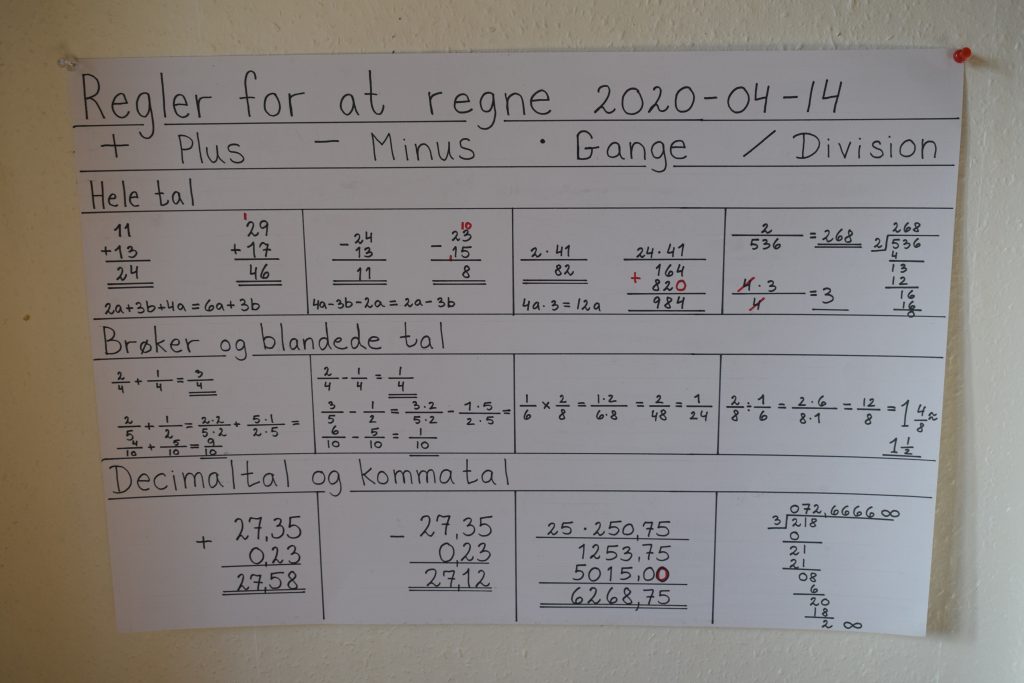 Regler for at regne 2020-04-14
+ Plus − Minus · Gange / Division
Hele tal
11
+13
24
1
29
+17
46
2a+3b+4a=6a+3b
-24
13
11
10
- 23
1 15
8
4a-3b-2a=2a-3b
2·41
82
4a·3=12a
24·41
+ 164
820
984
2
536
=268
4·3
4
=3
268
2 536
4
13
12
16
16
0
Brøker og blandede tal
2/4 + 1/4 = 3/4
2/5 + 1/2 = 2·2/5·2 + 5·1/2·5 =
4/10 + 5/10 = 9/10
2/4 - 1/4 = 1/4
3/5 - 1/2 = 3·2/5·2 - 1·5/2·5 =
6/10 - 5/10 = 1/10
1/6 × 2/8 = 1·2/6·8 = 2/48 = 1/24
2/8 ÷ 1/6 = 2·6/8·1 = 12/8 = 1 4/8 ≈
1 1/2
Decimaltal og kommatal
+ 27,35
0,23
27,58
- 27,35
0,23
27,12
25·250,75
1253,75
5015,00
6268,75
072,6666 ∞
3 218
0
21
21
08
6
20
18
2 ∞